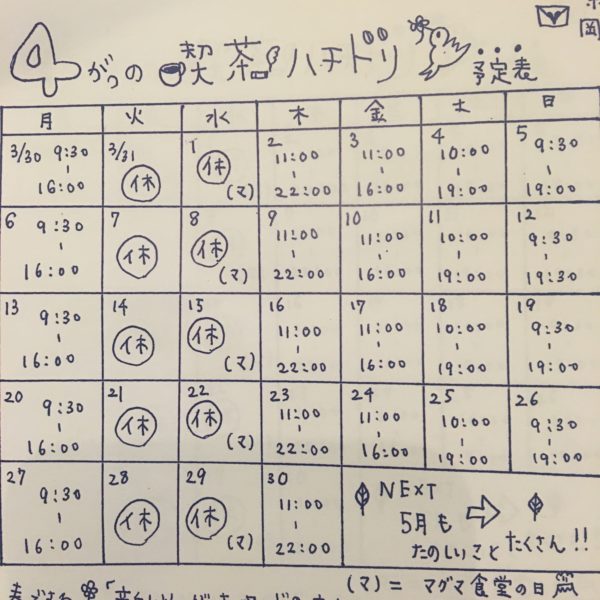 4がつの 喫茶ハチドリ 予定表
岡
月 火 水 木 金 土 日
3/30 9:30-16:00 3/31 休 1 休 (マ) 2 11:00-22:00 3 11:00-16:00 4 10:00-19:00 5 9:30-19:00
6 9:30-16:00 7 休 8 休 (マ) 9 11:00-22:00 10 11:00-16:00 11 10:00-19:00 12 9:30-19:30
13 9:30-16:00 14 休 15 休 (マ) 16 11:00-22:00 17 11:00-16:00 18 10:00-19:00 19 9:30-19:00
20 9:30-16:00 21 休 22 休 (マ) 23 11:00-22:00 24 11:00-16:00 25 10:00-19:00 26 9:30-19:00
27 9:30-16:00 28 休 29 休 (マ) 30 11:00-22:00
NEXT
5月も
たのしいこと たくさん!!
(マ)= マグマ食堂の日